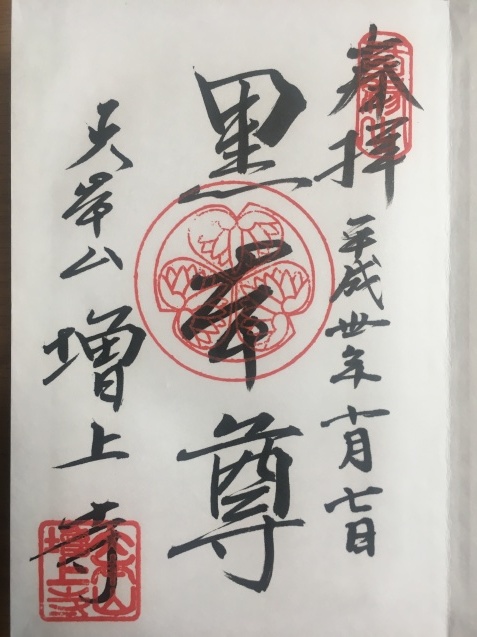 奉拝 平成卅年十月七日
黒本尊
山 増上寺
増上寺